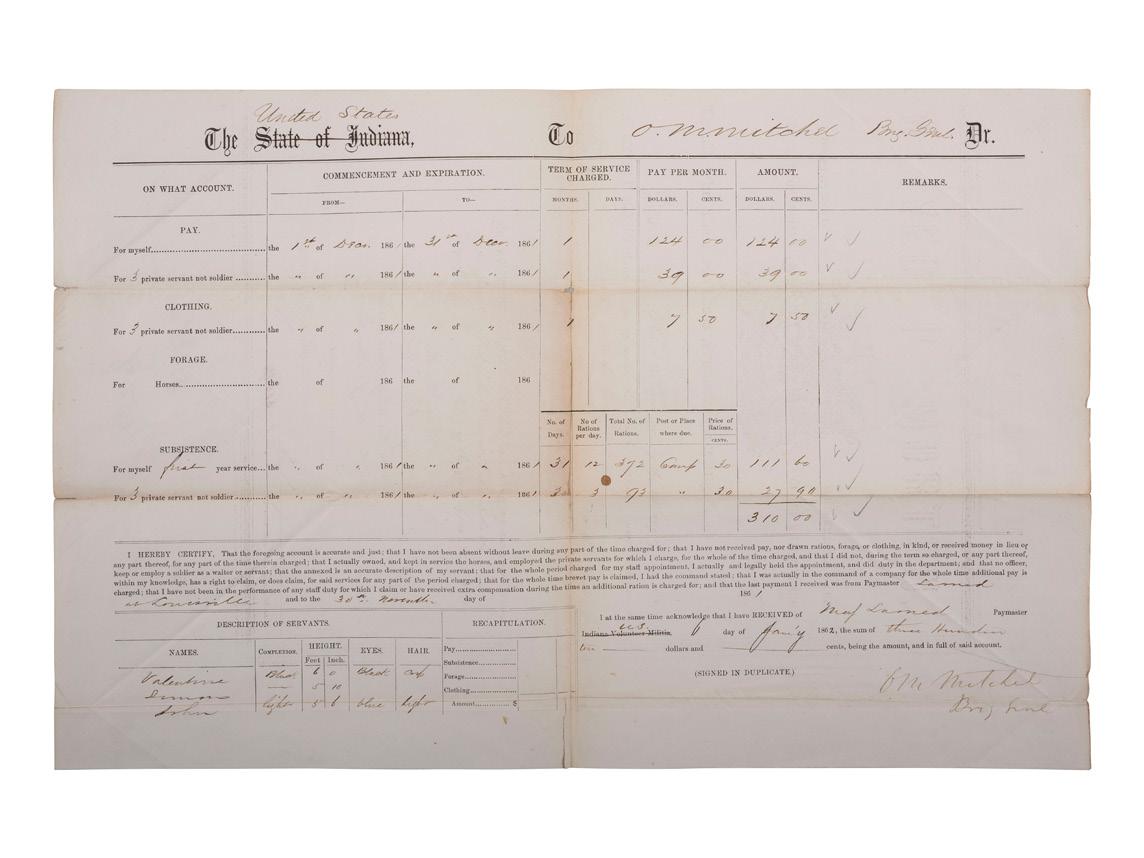 United States
The State of Indiana, To O. M. Mitchel Brig. Genl. Dr.
ON WHAT ACCOUNT. COMMENCEMENT AND EXPIRATION. TERM OF SERVICE CHARGED. PAY PER MONTH. AMOUNT. REMARKS.
FROM— TO— MONTHS. DAYS. DOLLARS. CENTS. DOLLARS. CENTS.
PAY.
For myself the 1st of Decr. 1861 the 31st of Decr. 1861 1 124 00 124 00
For 3 private servant not soldier the " of " 1861 the " of " 1861 1 39 00 39 00
CLOTHING.
For 3 private servant not soldier the " of " 1861 the " of " 1861 1 7 50 7 50
FORAGE.
For Horses the of 186 the of 186
No. of Days. No of Rations per day. Total No. of Rations. Post or Place where due. Price of Rations. CENTS.
SUBSISTENCE.
For myself first year service the " of " 1861 the " of " 1861 31 12 372 Camp 30 111 60
For 3 private servant not soldier the " of " 1861 the " of " 1861 3 93 " 30 27 90
310 00
I HEREBY CERTIFY, That the foregoing account is accurate and just; that I have not been absent without leave during any part of the time charged for; that I have not received pay, nor drawn rations, forage, or clothing, in kind, or received money in lieu of
any part thereof, for any part of the time therein charged; that I actually owned, and kept in service the horses, and employed the private servants for which I charge, for the whole of the time charged, and that I did not, during the term so charged, or any part thereof,
keep or employ a soldier as a waiter or servant; that the annexed is an accurate description of my servant; that for the whole period charged for my staff appointment, I actually and legally held the appointment, and did duty in the department; and that no officer,
within my knowledge, has a right to claim, or does claim, for said services for any part of the period charged; that for the whole time brevet pay is claimed, I had the command stated; that I was actually in the command of a company for the whole time additional pay is
charged; that I have not been in the performance of any staff duty for which I claim or have received extra compensation during the time an additional ration is charged for; and that the last payment I received was from Paymaster Larned
at Louisville and to the 30th November day of 1861
I at the same time acknowledge that I have RECEIVED of Maj Larned Paymaster
U.S.
Indiana Volunteer Militia, day of Jan'y 1862, the sum of three Hundred
ten dollars and cents, being the amount, and in full of said account.
(SIGNED IN DUPLICATE.)
O M Mitchel
Brig Genl
DESCRIPTION OF SERVANTS. RECAPITULATION.
NAMES. COMPLEXION. HEIGHT. Feet Inch. EYES. HAIR.
Valentine Black 6 0 Black
Simons 5 10
John light 5 6 blue light
Pay
Subsistence
Forage
Clothing
Amount $